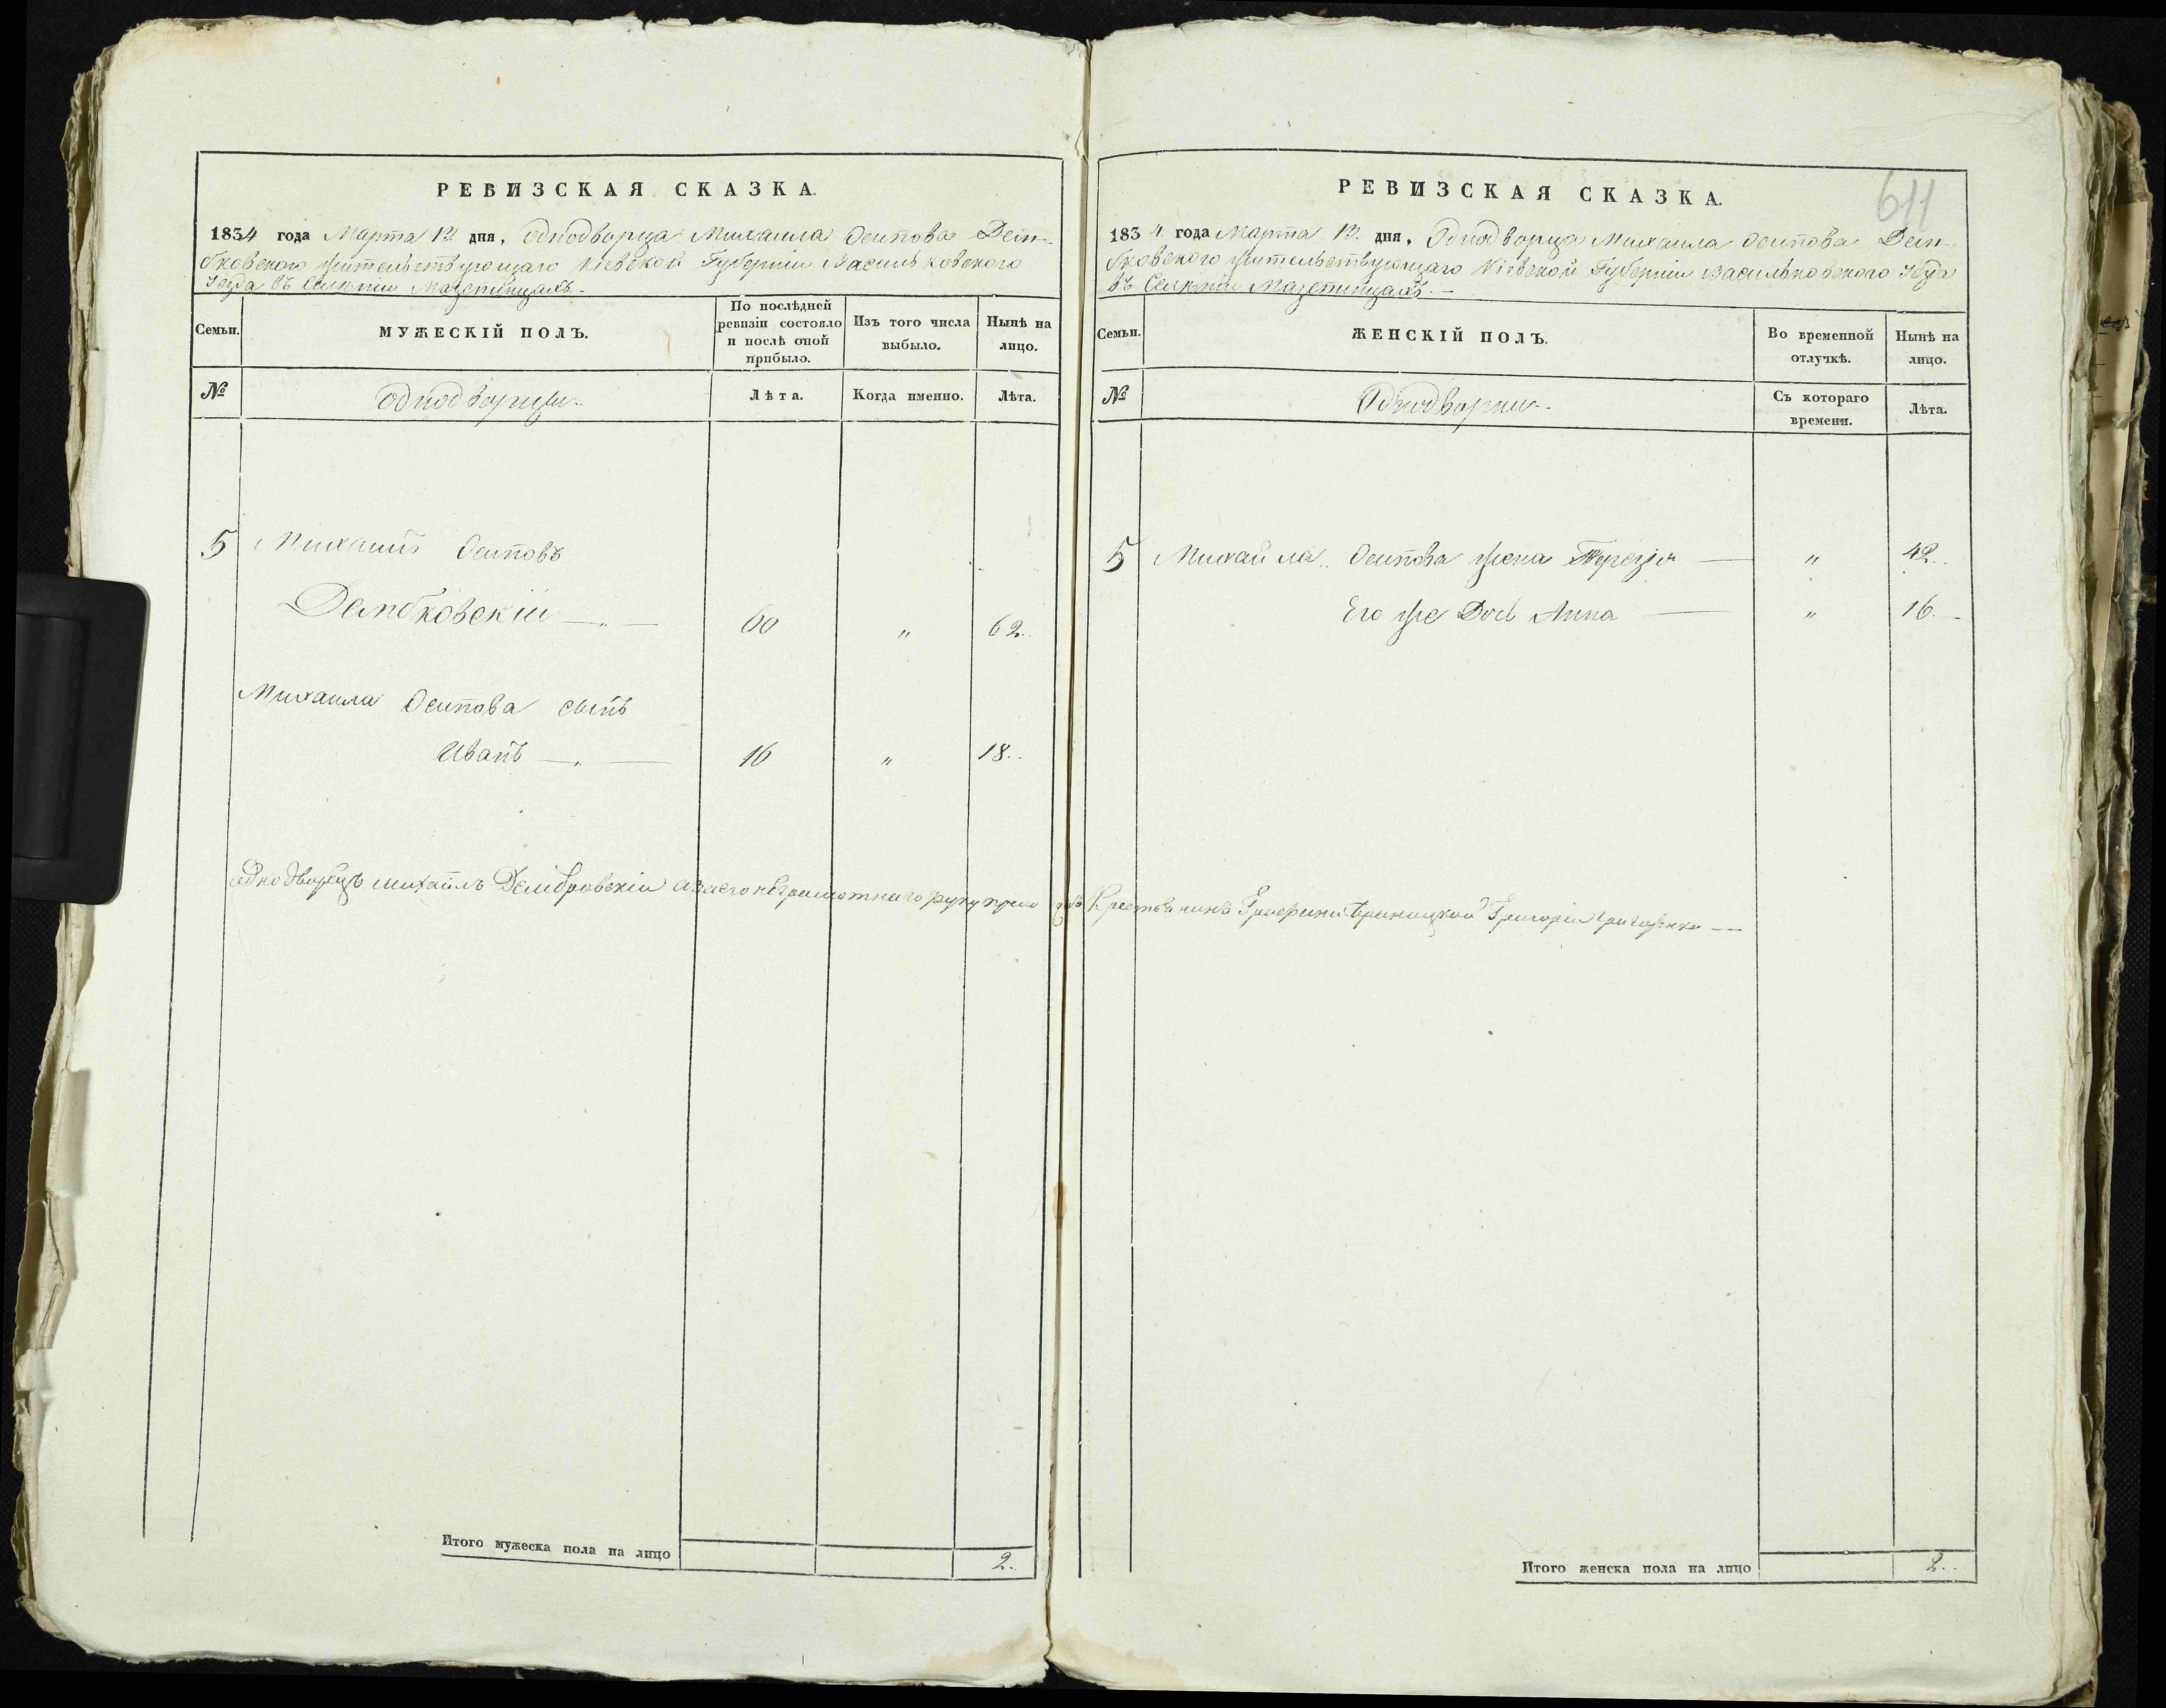 РЕВИЗСКАЯ СКАЗКА.
1834 года Марта 12 дня, Однодворца Михаила Осипова Дем-
бковского жительствующаго Кіевской Губерніи Васильковского
Уезда въ Селеніи Мазепинцахъ.
Семьи.
МУЖЕСКІЙ ПОЛЪ.
По послѣдней ревизіи состояло и послѣ оной прибыло.
Изъ того числа выбыло.
Нынѣ на лицо.
№
Однодворцы
Лѣта.
Когда именно.
Лѣта.
5 Михаилъ Осиповъ
Дембковскій 60 „ 62.
Михаила Осипова сынъ
Иванъ 16 „ 18.
Итого мужеска пола на лицо 2.
611
РЕВИЗСКАЯ СКАЗКА.
1834 года Марта 12 дня, Однодворца Михаила Осипова Дем-
бковского жительствующаго Кіевской Губерніи Васильковского Уезда
въ Селеніи Мазепинцахъ.
Семьи.
ЖЕНСКІЙ ПОЛЪ.
Во временной отлучкѣ.
Нынѣ на лицо.
№
Однодворки
Съ котораго времени.
Лѣта.
5 Михайла Осипова жена Терезія „ 42.
Его же Дочь Анна „ 16.
Однодворецъ михайлъ Дембровскій а вместо неграмотнаго руку прило жилъ Крестьянинъ Графини Браницкой Григорій
Итого женска пола на лицо 2.